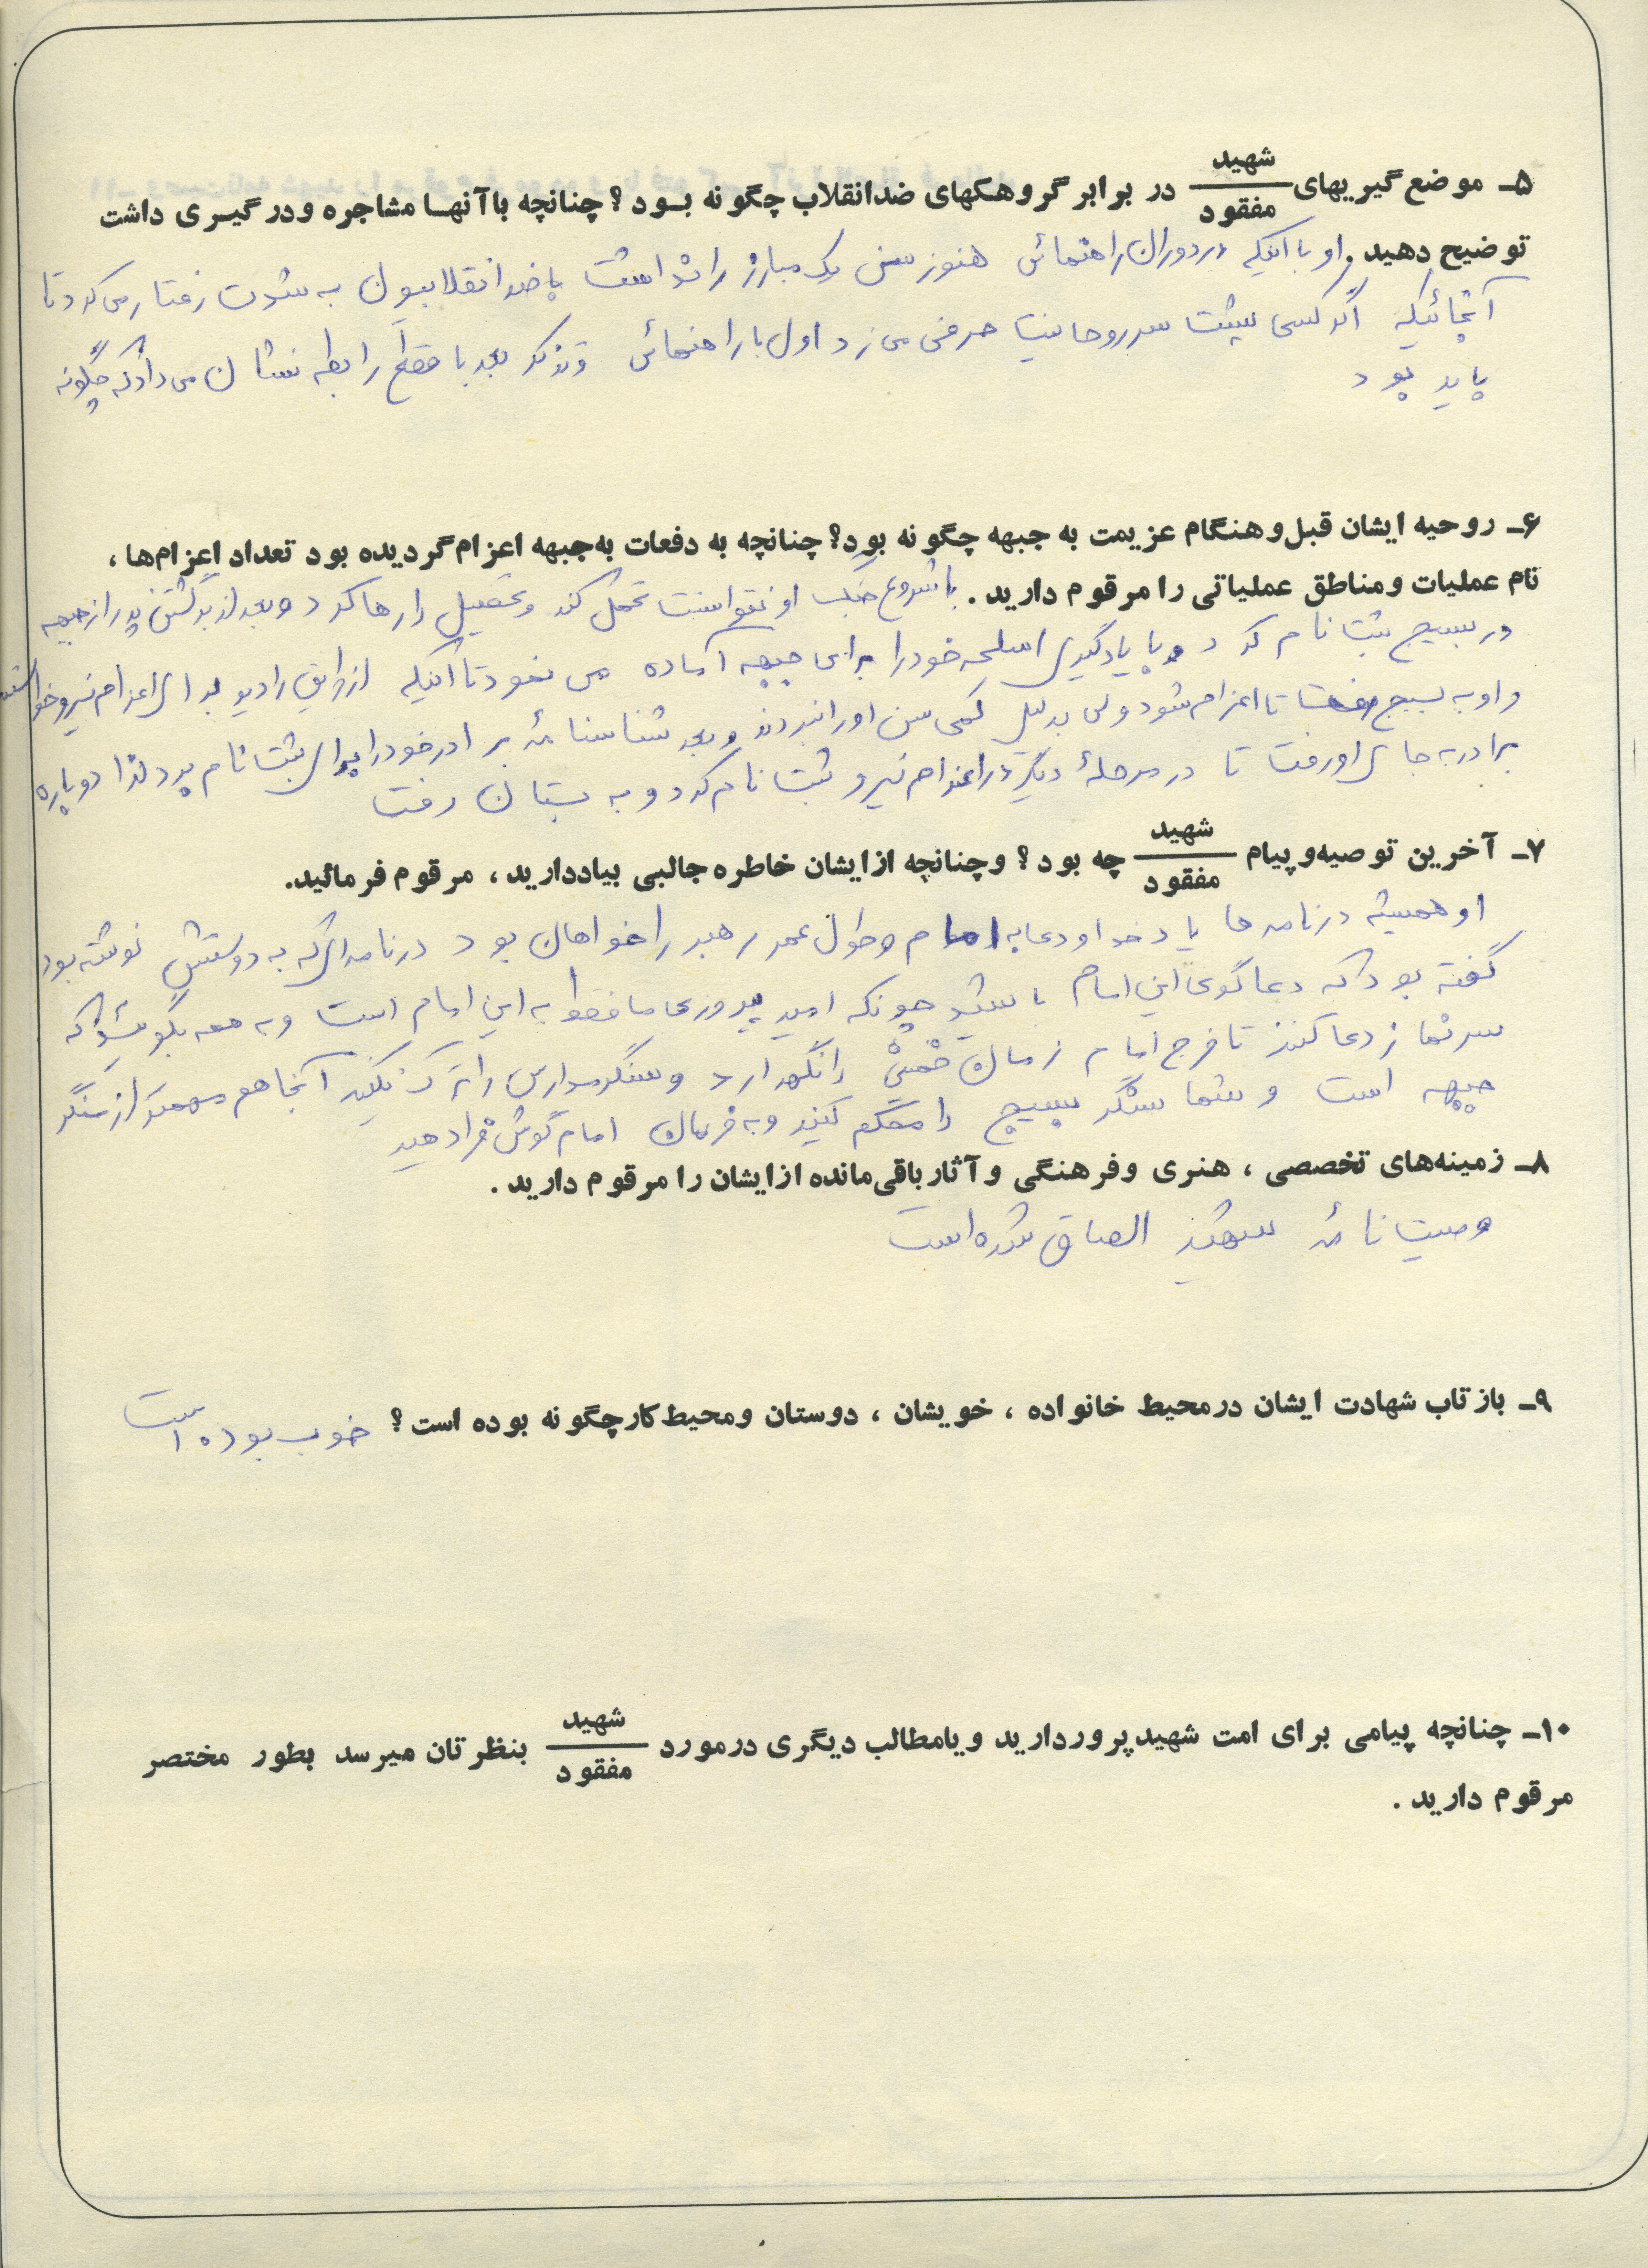 ۵ـ موضع گیریهای شهید/مفقود در برابر گروهکهای ضدانقلاب چگونه بود؟ چنانچه باآنها مشاجره ودرگیری داشت
توضیح دهید. او با اینکه در دوران راهنمائی هنوز سن یک مبارز را نداشت با ضد انقلابیون به شدت رفتار می کرد تا
آنجائیکه اگر کسی پشت سر روحانیت حرفی می زد اول با راهنمائی و تذکر بعد با قطع رابطه نشان می داد که چگونه
باید بود
۶ـ روحیه ایشان قبل و هنگام عزیمت به جبهه چگونه بود؟ چنانچه به دفعات به جبهه اعزام گردیده بود تعداد اعزام‌ها،
نام عملیات و مناطق عملیاتی را مرقوم دارید. با شروع جنگ او نتوانست تحمل کند و تحصیل را رها کرد و بعد از برگشتن پدر از جبهه
در بسیج ثبت نام کرد و با یادگیری اسلحه خود را برای جبهه آماده می نمود تا اینکه از طریق رادیو برای اعزام نیرو خواستند
و او به بسیج رفت تا اعزام شود ولی بدلیل کمی سن او را نبردند و بعد شناسنامهٔ برادر خود را برای ثبت نام برد لذا دوباره
برادر به جای او رفت تا در مرحلهٔ دیگر در اعزام نیرو ثبت نام کرد و به بستان رفت
۷ـ آخرین توصیه و پیام شهید/مفقود چه بود؟ و چنانچه از ایشان خاطره جالبی بیاد دارید، مرقوم فرمائید.
او همیشه در نامه ها یاد خدا و دعا به امام و طول عمر رهبر را خواهان بود در نامه ای که به دوستش نوشته بود
گفته بود که دعاگوی این امام باشید چونکه امید پیروزی ما فقط به این امام است و به همه بگوئید که
سر نماز دعا کنند تا فرج امام زمان خمینی را نگهدارد و سنگر مدارس را ترک نکنید آنجا هم مهمتر از سنگر
جبهه است و شما سنگر بسیج را محکم کنید و به فرمان امام گوش فرا دهید
۸ـ زمینه‌های تخصصی، هنری و فرهنگی و آثار باقی‌مانده از ایشان را مرقوم دارید.
وصیت نامهٔ شهید الصاق شده است
۹ـ بازتاب شهادت ایشان در محیط خانواده، خویشان، دوستان و محیط کار چگونه بوده است؟ خوب بوده است
۱۰ـ چنانچه پیامی برای امت شهیدپرور دارید و یا مطالب دیگری در مورد شهید/مفقود بنظرتان میرسد بطور مختصر
مرقوم دارید.